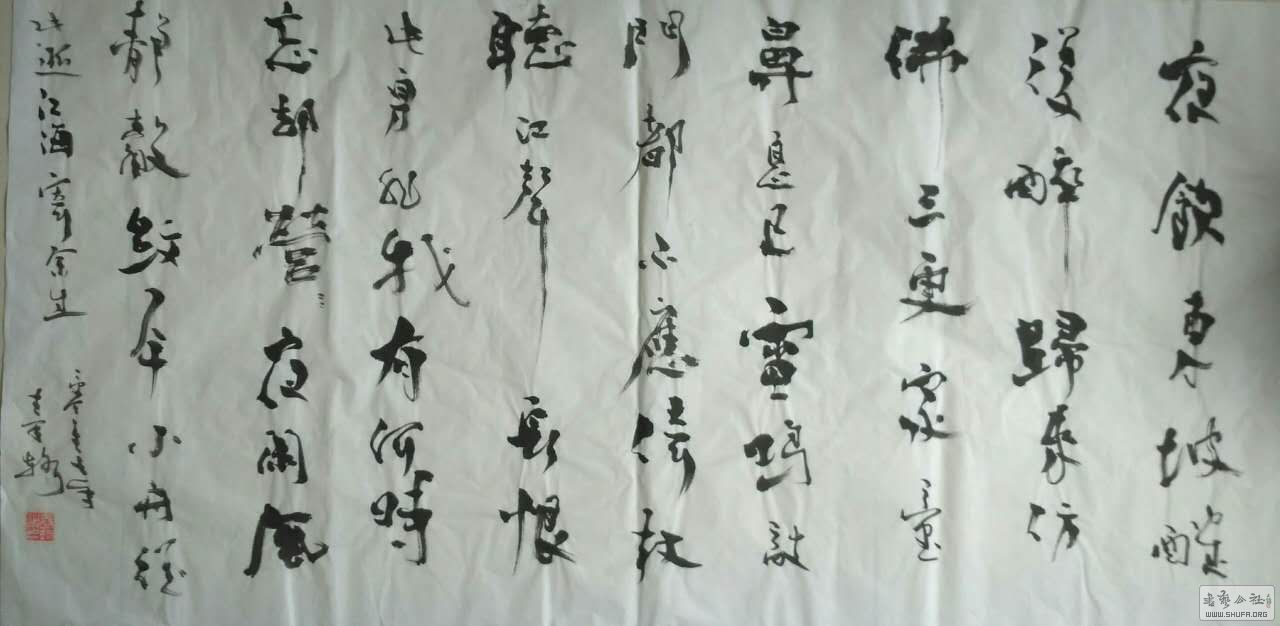 夜飲東坡醒
復醉歸來彷
佛三更家童
鼻息已雷鳴敲
門都不應倚杖
聽江聲長恨
此身非我有何時
忘却營々夜闌風
靜縠紋平小舟從
此逝江海寄余生
WWW.SHUFA.ORG